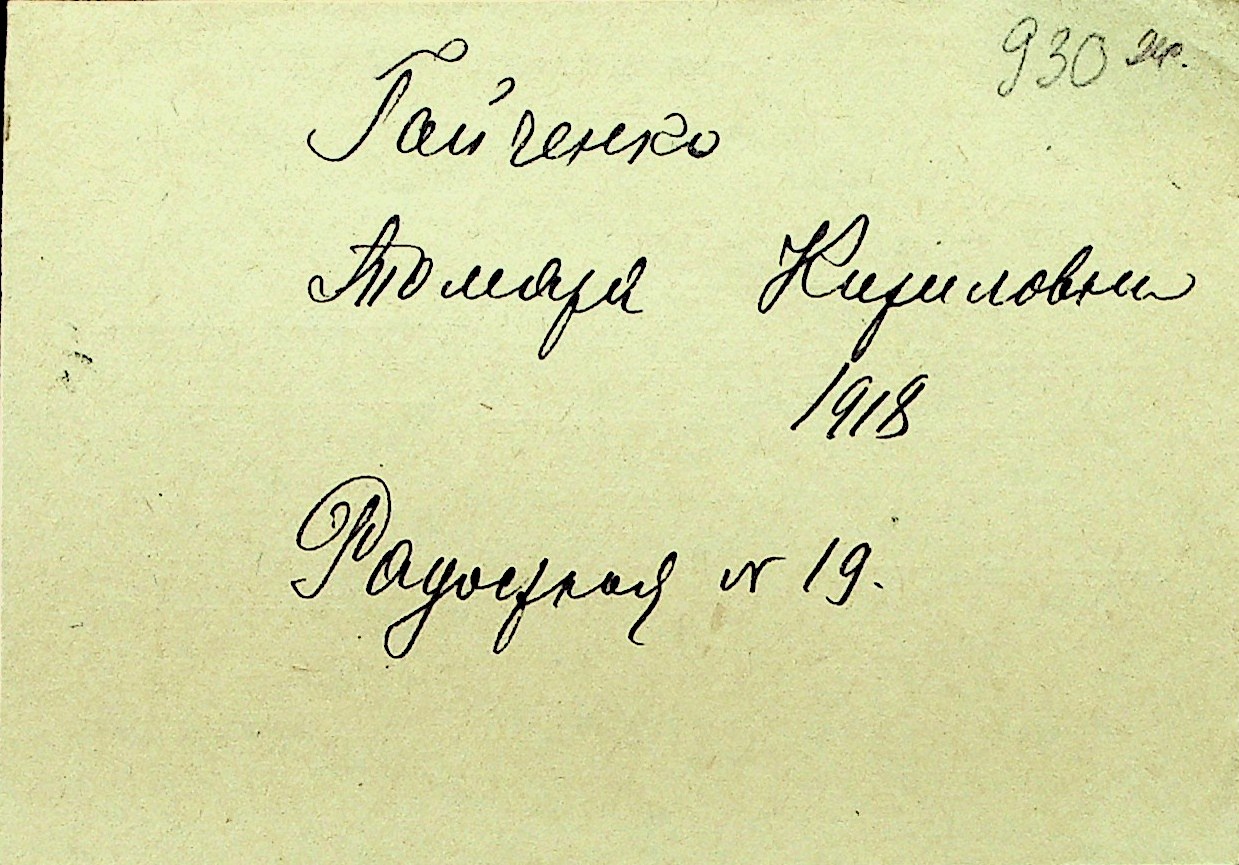 930
Гайченко
Томара Кириловна
1918
Радостная № 19.